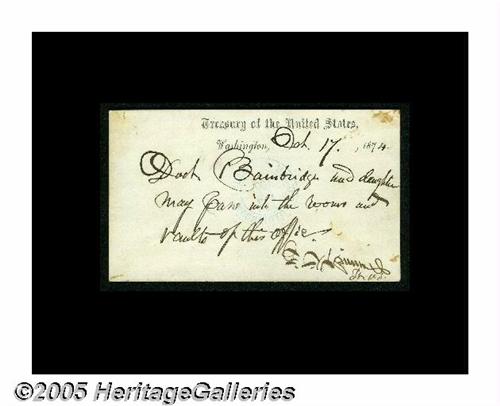 Treasury of the United States,
Washington, Oct. 17, 1874.
Doct Bainbridge and daughter
may pass into the rooms and
vaults of this office.
©2005 HeritageGalleries